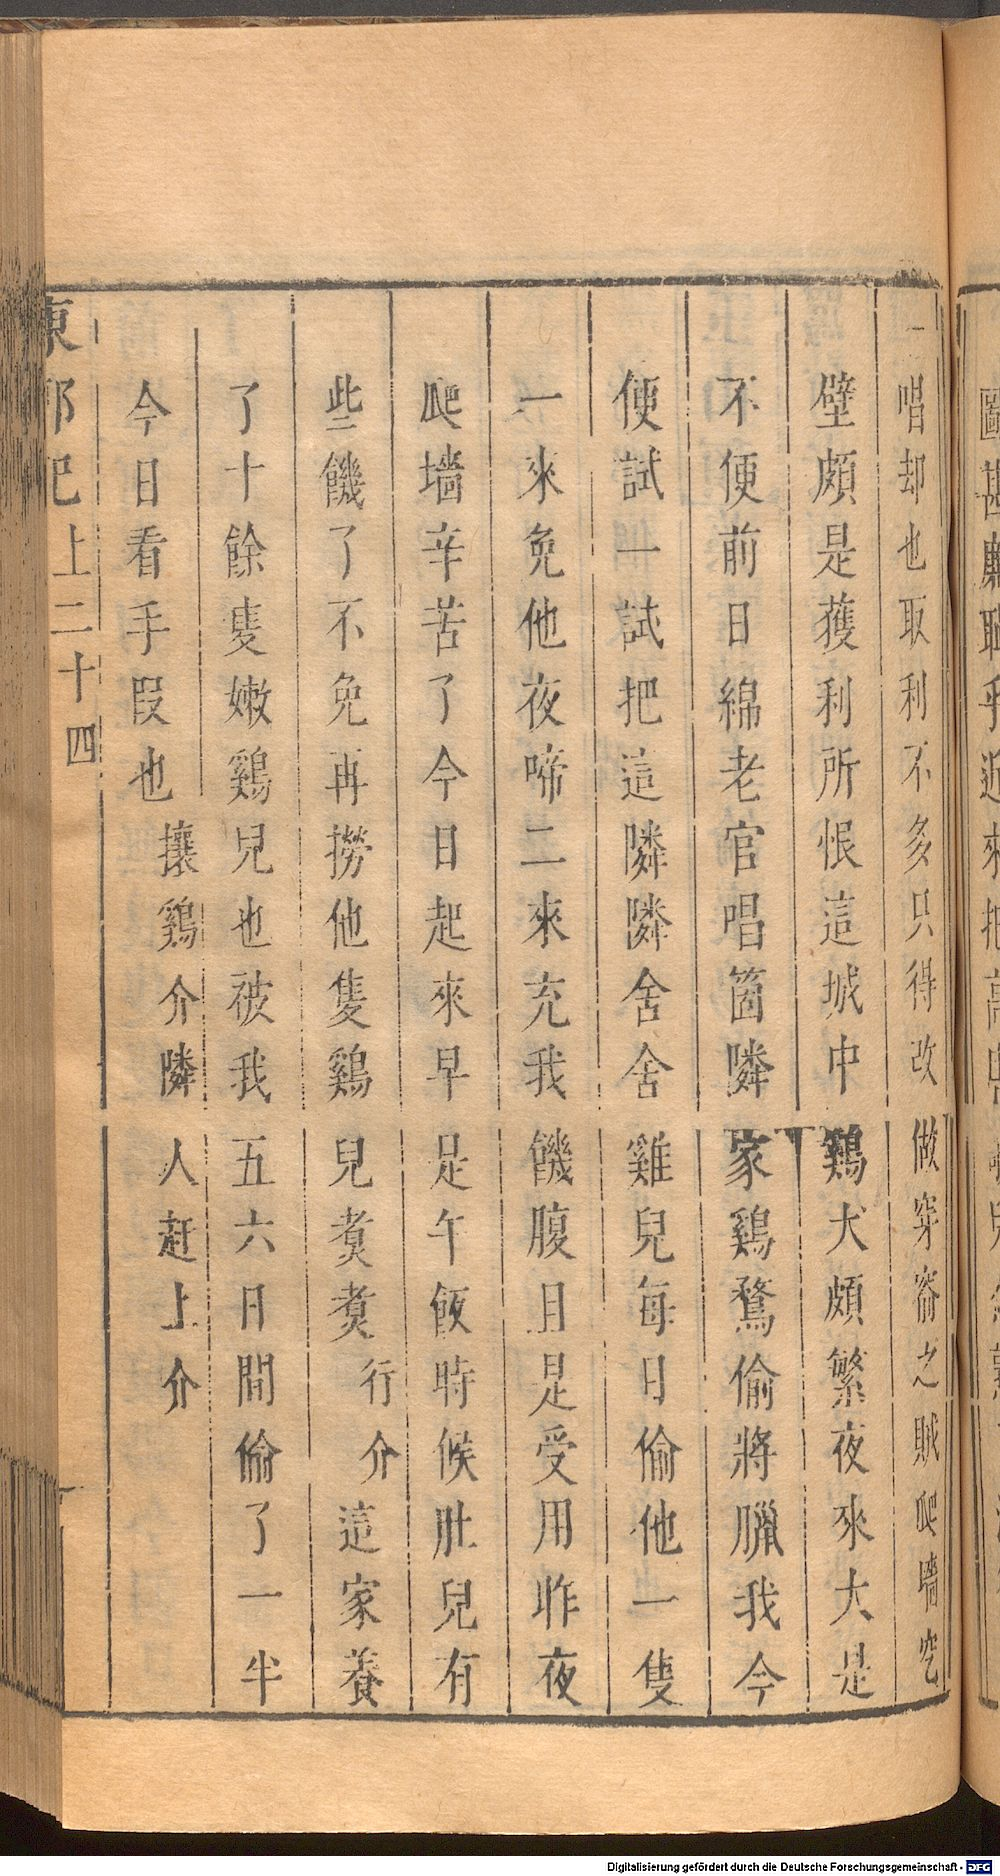 唱却也取利不多只得改做穿窬之賊爬墻空
壁頗是獲利所恨這城中鷄犬頗繁夜來大是
不便前日綿老官唱箇隣家鷄鶩偷將臘我今
便試一試把這隣隣舍舍雞兒每日偷他一隻
一來免他夜啼二來充我饑腹且是受用昨夜
爬墻辛苦了今日起來早是午飯時候肚兒有
些饑了不免再撈他隻鷄兒煑煑行介這家養
了十餘隻嫩鷄兒也被我五六日間偷了一半
今日看手叚也攘鷄介隣人赶上介
東郭記上二十四
Digitalisierung gefördert durch die Deutsche Forschungsgemeinschaft - DFG